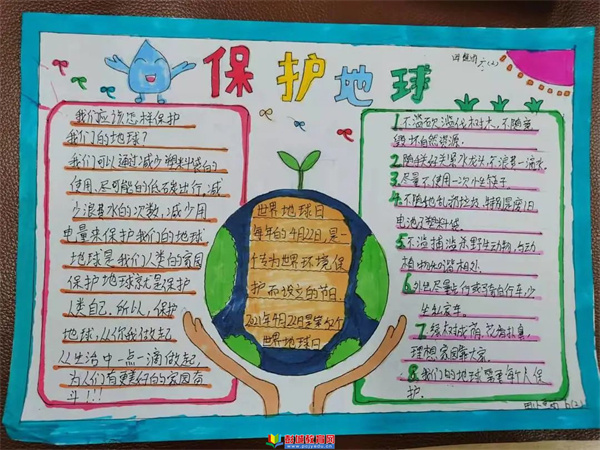 保护地球
我们应该怎样保护
我们的地球？
我们可以通过减少塑料袋的
使用，尽可能的低碳出行，减
少浪费水的次数，减少用
电量来保护我们的地球
地球是我们人类的家园
保护地球就是保护
人类自己．所以，保护
地球，从你我做起
从生活中一点一滴做起，
为人们有更美好的家园奋
斗！！！
世界地球日
每年的4月22日，是一
个专为世界环境保
护而设立的节日
2021年4月22日是第52个
世界地球日
1不滥砍滥伐树木，不随意
毁坏自然资源．
2随手关好水龙头，不浪费一滴水
3尽量不使用一次小生筷子
4不随地乱扔垃圾，特别是废旧
电池及塑料袋
5不滥捕滥杀野生动物，与动
植物和谐相处．
6外出尽量步行或骑自行车，少
坐私家车．
7绿树成荫，花香扑鼻，
理想家园靠大家．
8我们的地球需要每个人保
护．
彭博教育网
www.pcjyedu.cn